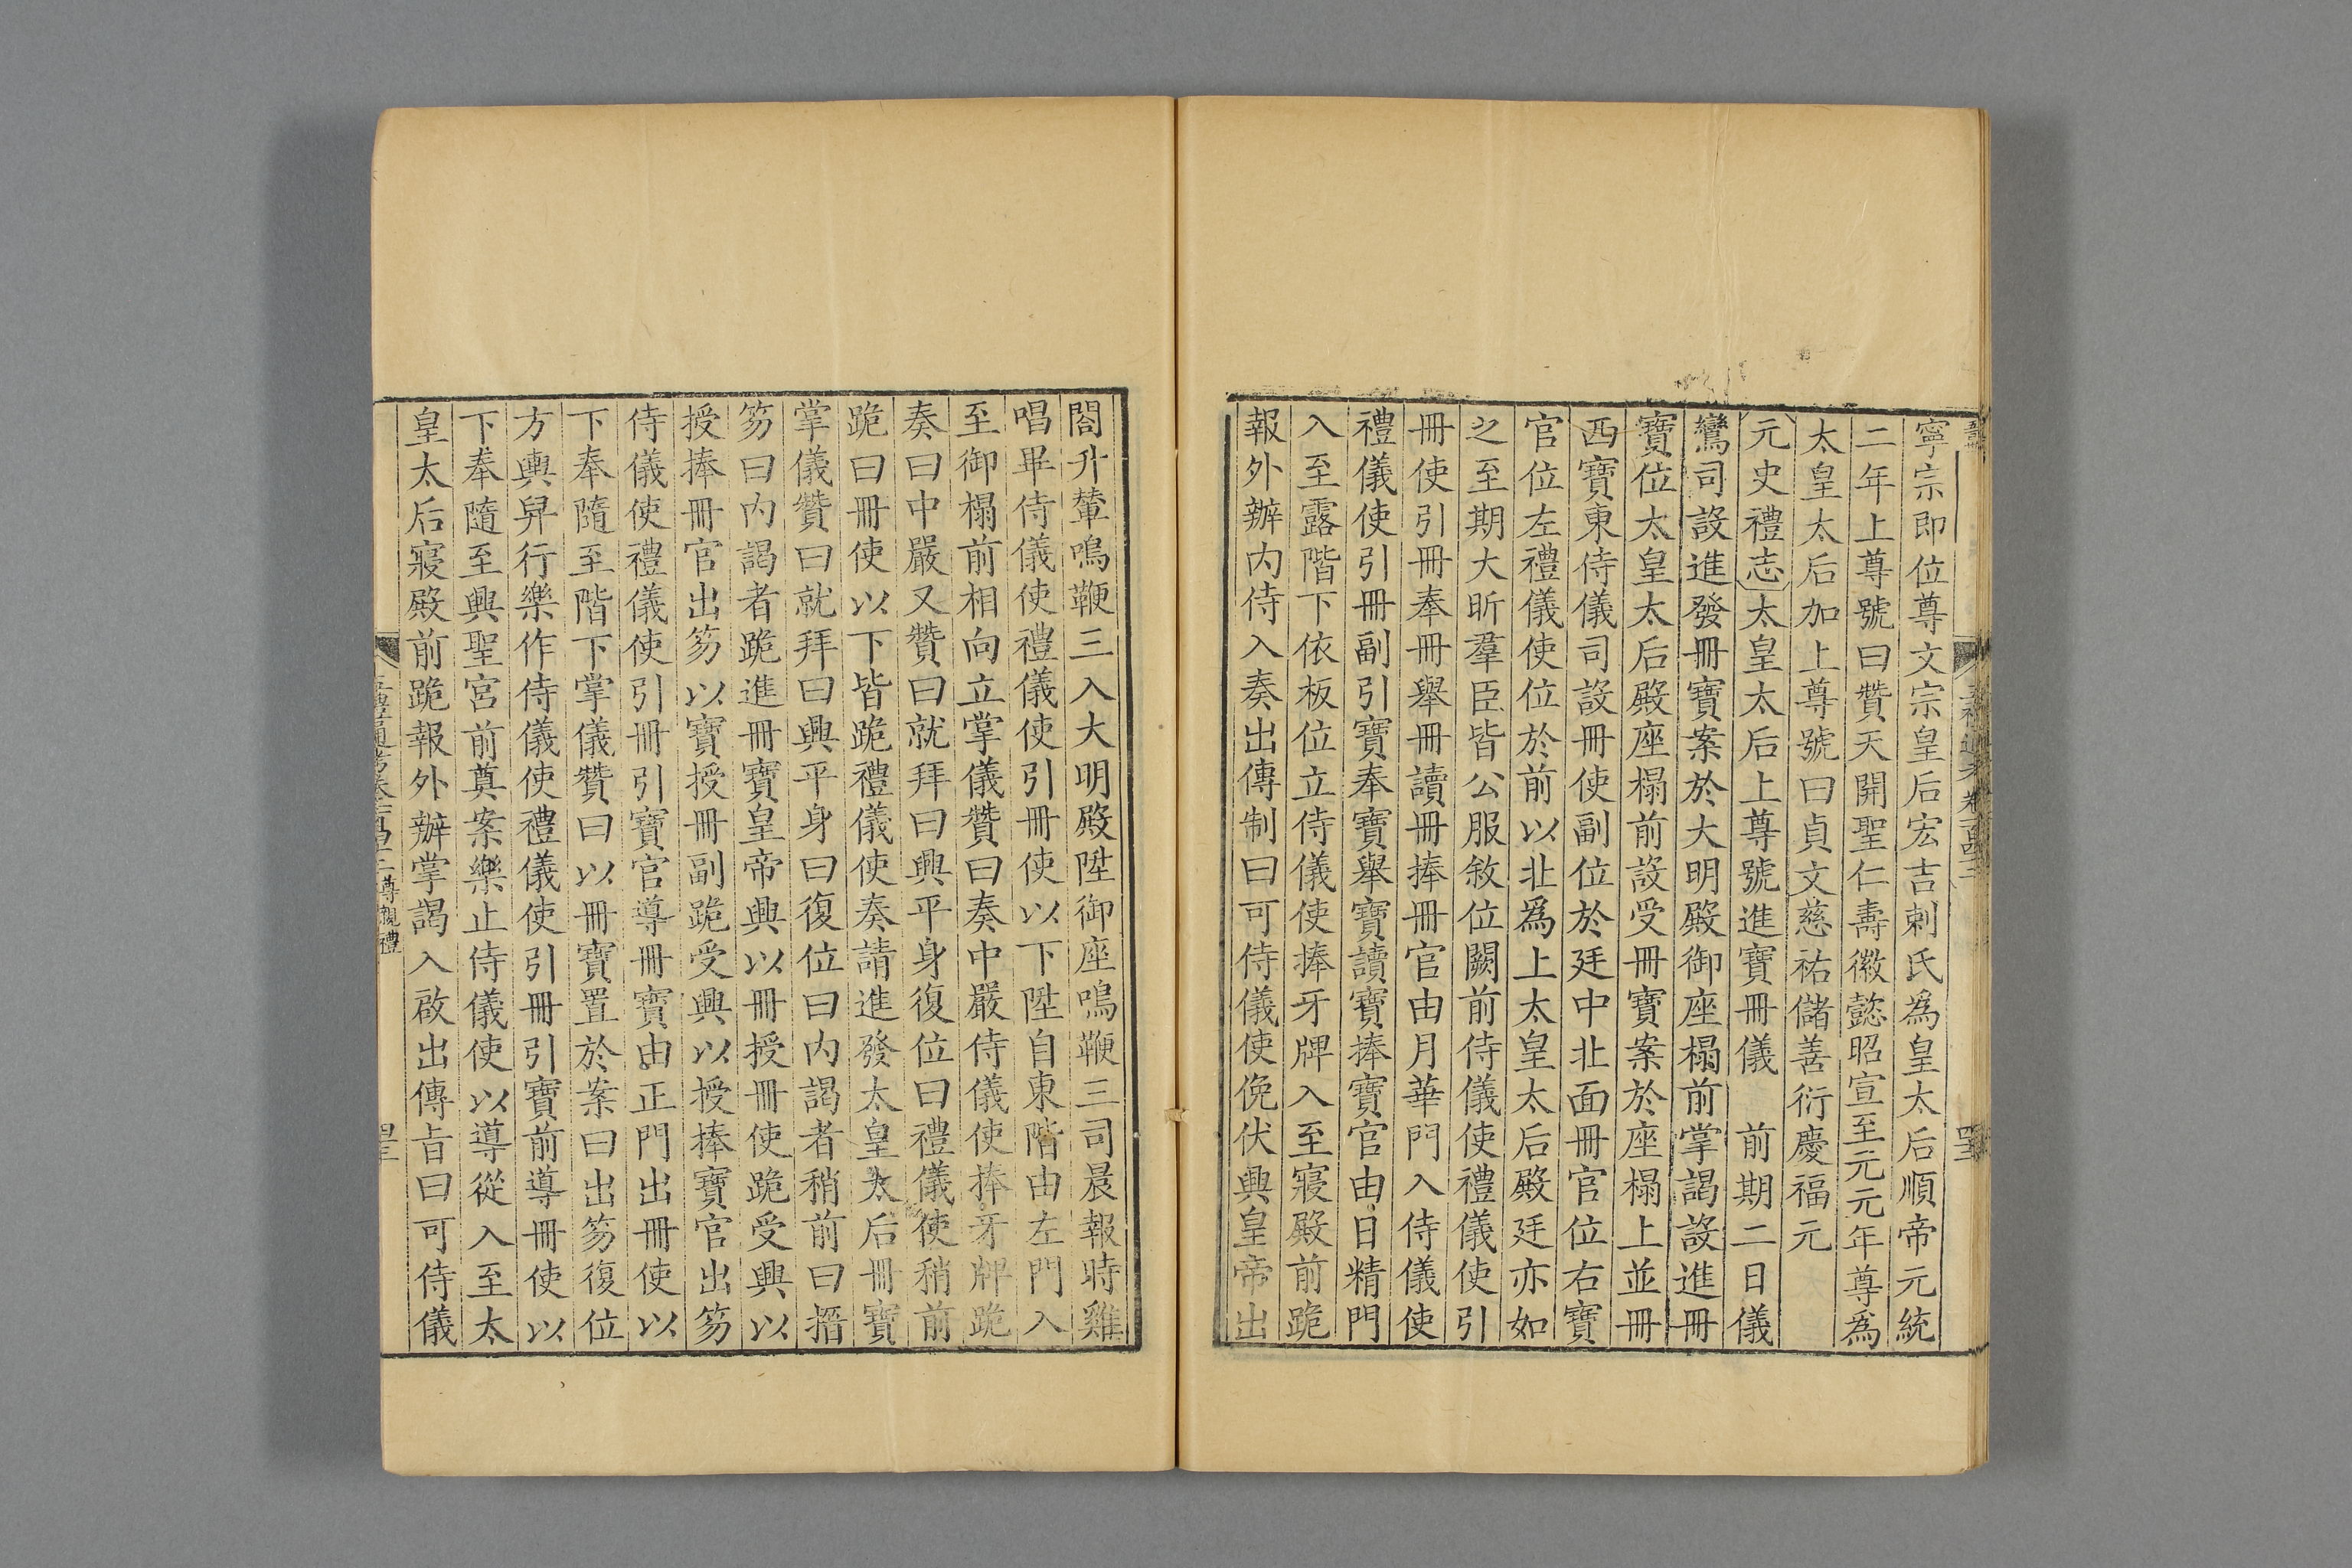 寧宗即位尊文宗皇后宏吉剌氏為皇太后順帝元統
二年上尊號曰贊天開聖仁壽徽懿昭宣至元元年尊為
太皇太后加上尊號曰貞文慈祐儲善衍慶福元
元史禮志太皇太后上尊號進寶冊儀　前期二日儀
鸞司設進發冊寶案於大明殿御座榻前掌謁設進冊
寶位太皇太后殿座榻前設受冊寶案於座榻上並冊
西寶東侍儀司設冊使副位於廷中北面冊官位右寶
官位左禮儀使位於前以北爲上太皇太后殿廷亦如
之至期大昕羣臣皆公服敘位闕前侍儀使禮儀使引
冊使引冊奉冊舉冊讀冊捧冊官由月華門入侍儀使
禮儀使引冊副引寶奉寶舉寶讀寶捧寶官由日精門
入至露階下依板位立侍儀使捧牙牌入至寢殿前跪
報外辦內侍入奏出傳制曰可侍儀使俛伏興皇帝出
閤升輦鳴鞭三入大明殿陞御座鳴鞭三司晨報時雞
唱畢侍儀使禮儀使引冊使以下陞自東階由左門入
至御榻前相向立掌儀贊曰奏中嚴侍儀使捧牙牌跪
奏曰中嚴又贊曰就拜曰興平身復位曰禮儀使稍前
跪曰冊使以下皆跪禮儀使奏請進發太皇太后冊寶
掌儀贊曰就拜曰興平身曰復位曰內謁者稍前曰搢
笏曰內謁者跪進冊寶皇帝興以冊授冊使跪受興以
授捧冊官出笏以寶授冊副跪受興以授捧寶官出笏
侍儀使禮儀使引冊引寶官導冊寶由正門出冊使以
下奉隨至階下掌儀贊曰以冊寶置於案曰出笏復位
方輿舁行樂作侍儀使禮儀使引冊引寶前導冊使以
下奉隨至興聖宮前奠案樂止侍儀使以導從入至太
皇太后寢殿前跪報外辦掌謁入啟出傳旨曰可侍儀
尊親禮